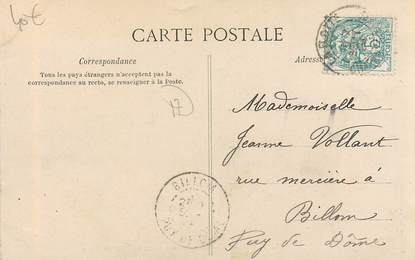 40€
CARTE POSTALE
Correspondance
Tous les pays étrangers n'acceptent pas la
correspondance au recto, se renseigner à la Poste.
Adresse
17
Mademoiselle
Jeanne Vollant
rue mercière à
Billom
Puy de Dôme
BILLOM
PUY DE